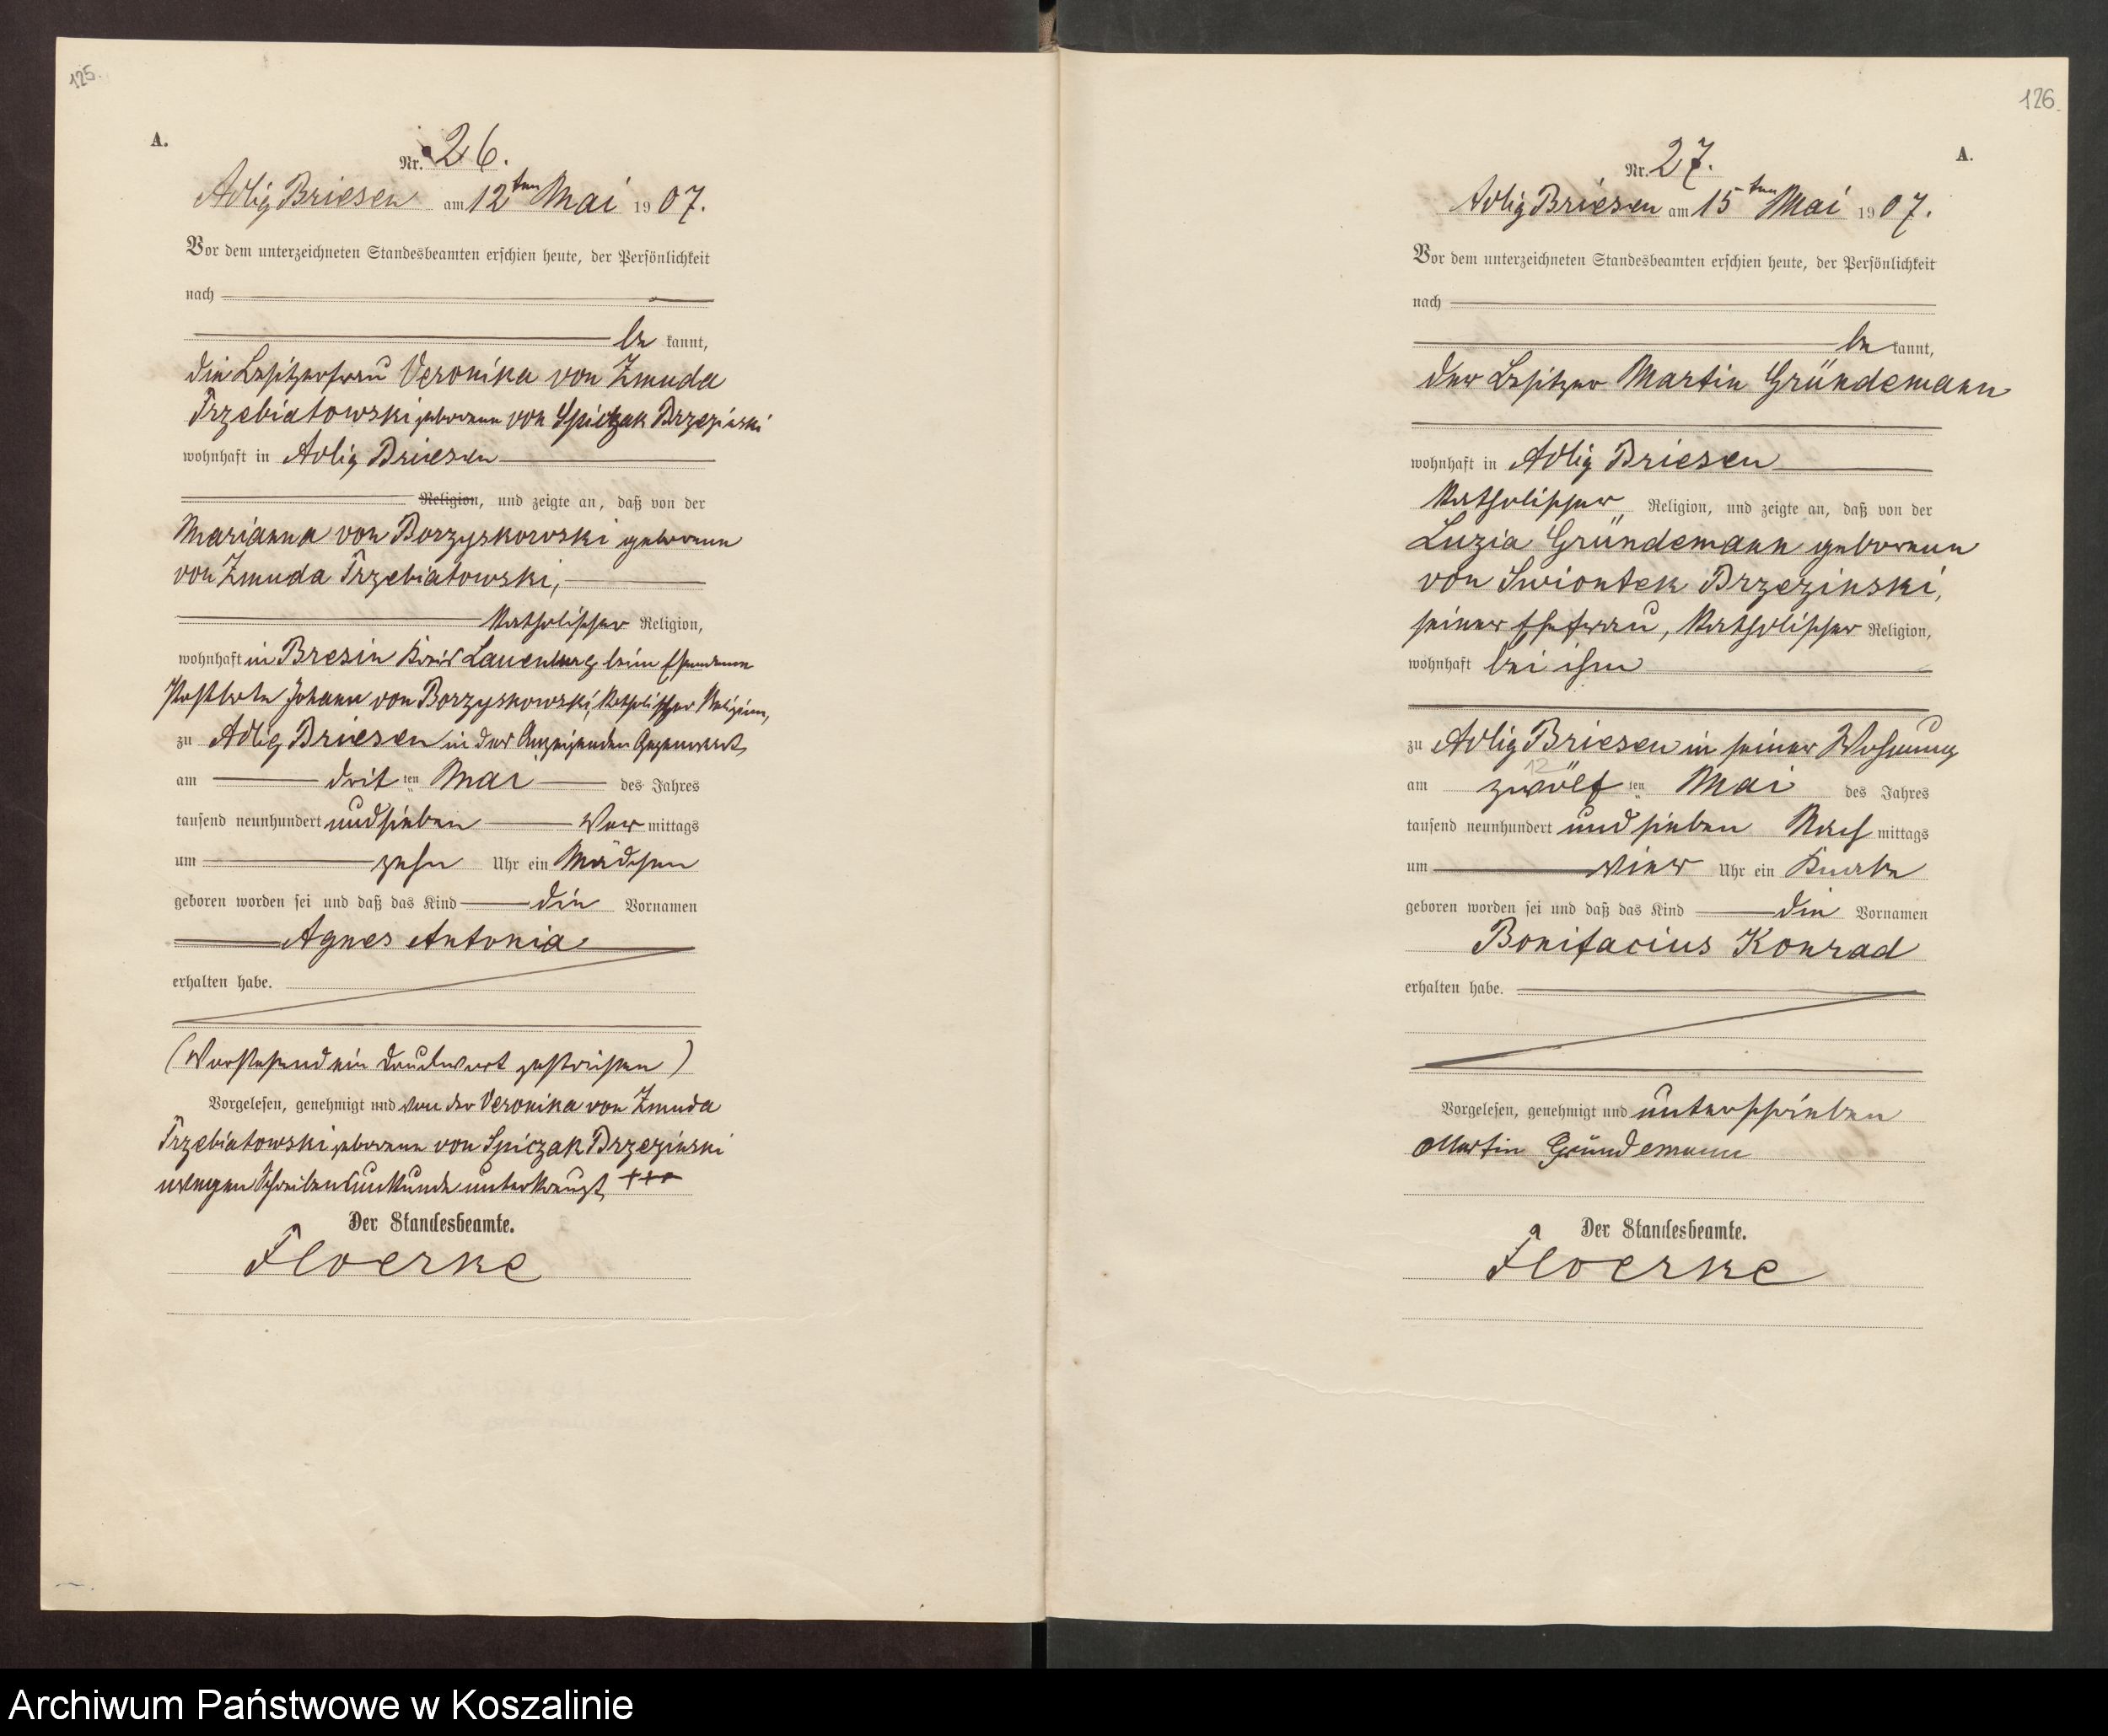 125.
A.
Nr. 26.
Adlig Briesen am 12ten Mai 1907.
Vor dem unterzeichneten Standesbeamten erschien heute, der Persönlichkeit
nach
be kannt,
die Besitzerfrau Veronika von Zmuda
Trzebiatowski geborene von Spiczak Brzezinski
wohnhaft in Adlig Briesen
Religion, und zeigte an, daß von der
Marianna von Borzyskowski geborene
von Zmuda Trzebiatowski,
katholischer Religion,
wohnhaft in Bresin Kreis Lauenburg beim Ehemanne
Postbote Johann von Borzyskowski, katholischer Religion,
zu Adlig Briesen in der Anzeigenden Gegenwart,
am dritten Mai des Jahres
tausend neunhundert und sieben Vormittags
um zehn Uhr ein Mädchen
geboren worden sei und daß das Kind die Vornamen
Agnes Antonia
erhalten habe.
(Vorstehend ein Druckwort gestrichen)
Vorgelesen, genehmigt und von der Veronika von Zmuda
Trzebiatowski geborene von Spiczak Brzezinski
wegen Schreibensunkunde unterkreuzt, +++
Der Standesbeamte.
Floerke
126.
A.
Nr. 27.
Adlig Briesen am 15ten Mai 1907.
Vor dem unterzeichneten Standesbeamten erschien heute, der Persönlichkeit
nach
be kannt,
der Besitzer Martin Gründemann
wohnhaft in Adlig Briesen
katholischer Religion, und zeigte an, daß von der
Luzia Gründemann geborenen
von Swiontek Brzezinski,
seiner Ehefrau, katholischer Religion,
wohnhaft bei ihm
zu Adlig Briesen in seiner Wohnung
12
am zwölften Mai des Jahres
tausend neunhundert und sieben Nachmittags
um vier Uhr ein Knabe
geboren worden sei und daß das Kind die Vornamen
Bonifacius Konrad
erhalten habe.
Vorgelesen, genehmigt und unterschrieben
Martin Gründemann
Der Standesbeamte.
Floerke
Archiwum Państwowe w Koszalinie